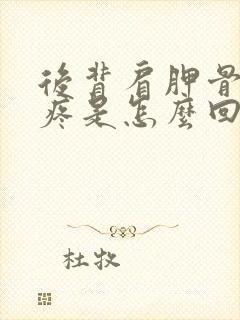 後背肩胛骨
疼是怎麼回
杜牧